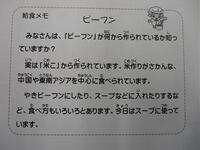 給食メモ
ビーフン
みなさんは、「ビーフン」が何から作られているか知っ
ていますか?
実は「米こ」から作られています。米作りがさかんな、
中国や東南アジアを中心に食べられています。
やきビーフンにしたり、スープなどに入れたりするな
ど、食べ方もいろいろとあります。今日はスープに使って
います。